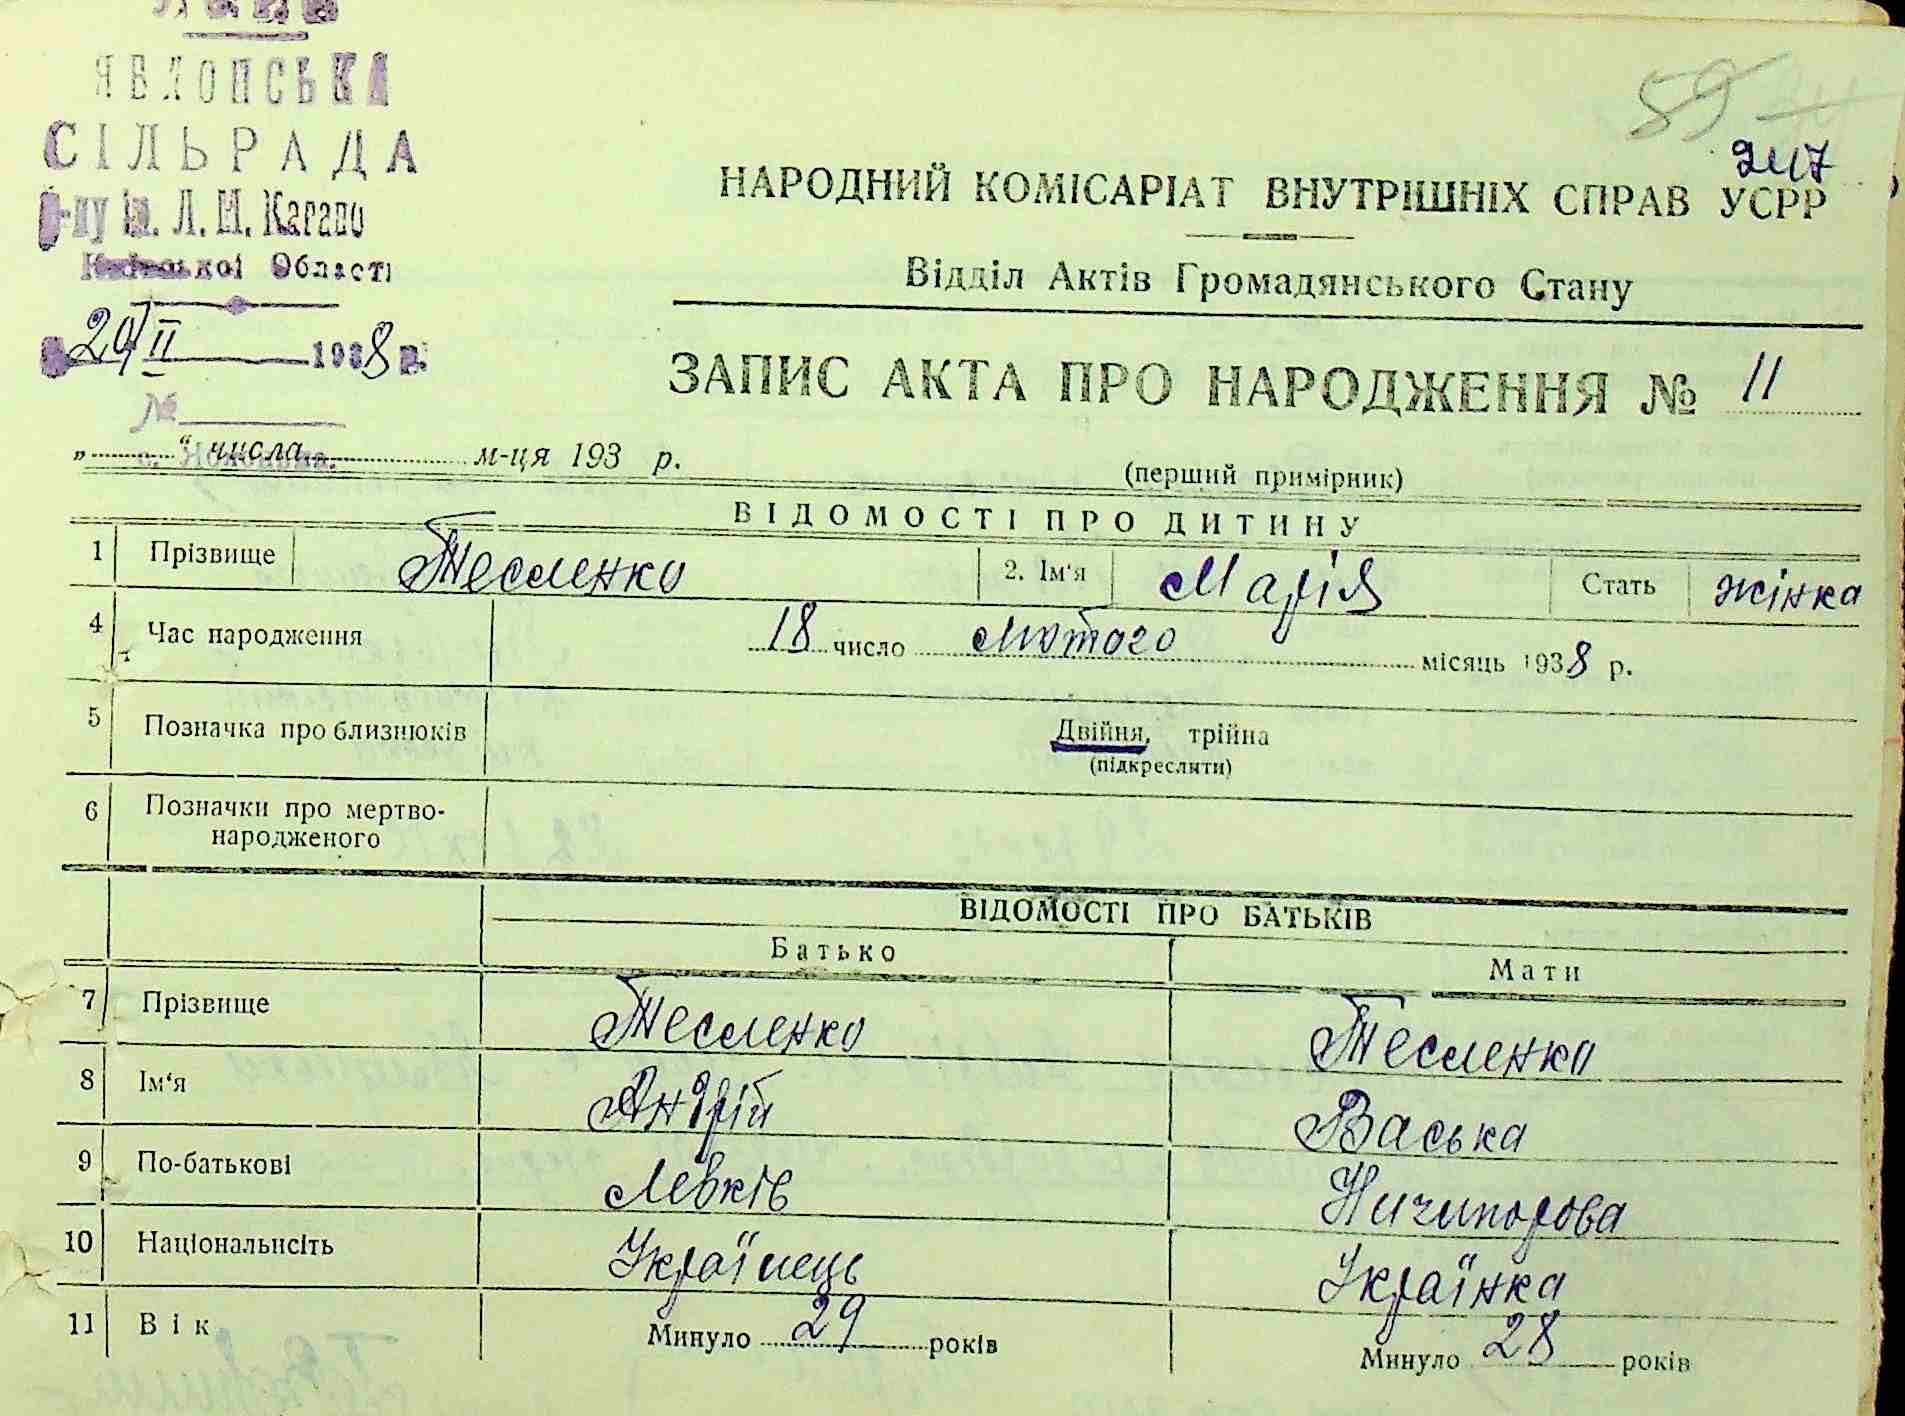 ЯБЛОНСЬКА
СІЛЬРАДА
р-ну ім. Л. М. Кагано
Київської Області
29/II 1938 р.
№
59
247
НАРОДНИЙ КОМІСАРІАТ ВНУТРІШНІХ СПРАВ УСРР
Відділ Актів Громадянського Стану
ЗАПИС АКТА ПРО НАРОДЖЕННЯ № 11
„ “ числа м-ця 193 р.
(перший примірник)
ВІДОМОСТІ ПРО ДИТИНУ
1 Прізвище Тесленко 2. Ім'я Марія Стать жінка
4 Час народження 18 число лютого місяць 1938 р.
5 Позначка про близнюків Двійня, трійна
(підкреслити)
6 Позначки про мертво-
народженого
ВІДОМОСТІ ПРО БАТЬКІВ
Батько Мати
7 Прізвище Тесленко Тесленко
8 Ім‘я Андрій Васька
9 По-батькові Левків Ничипорова
10 Національнсіть Українець Українка
11 Вік Минуло 29 років Минуло 28 років